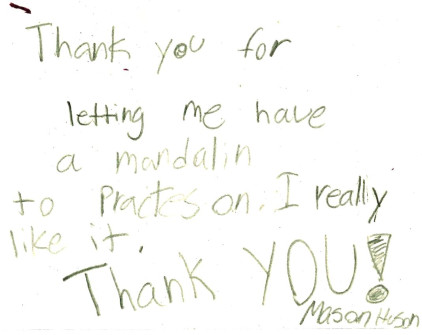 Thank you for
letting me have
a mandalin
to Practes on. I really
like it.
Thank YOU!
Mason Huson